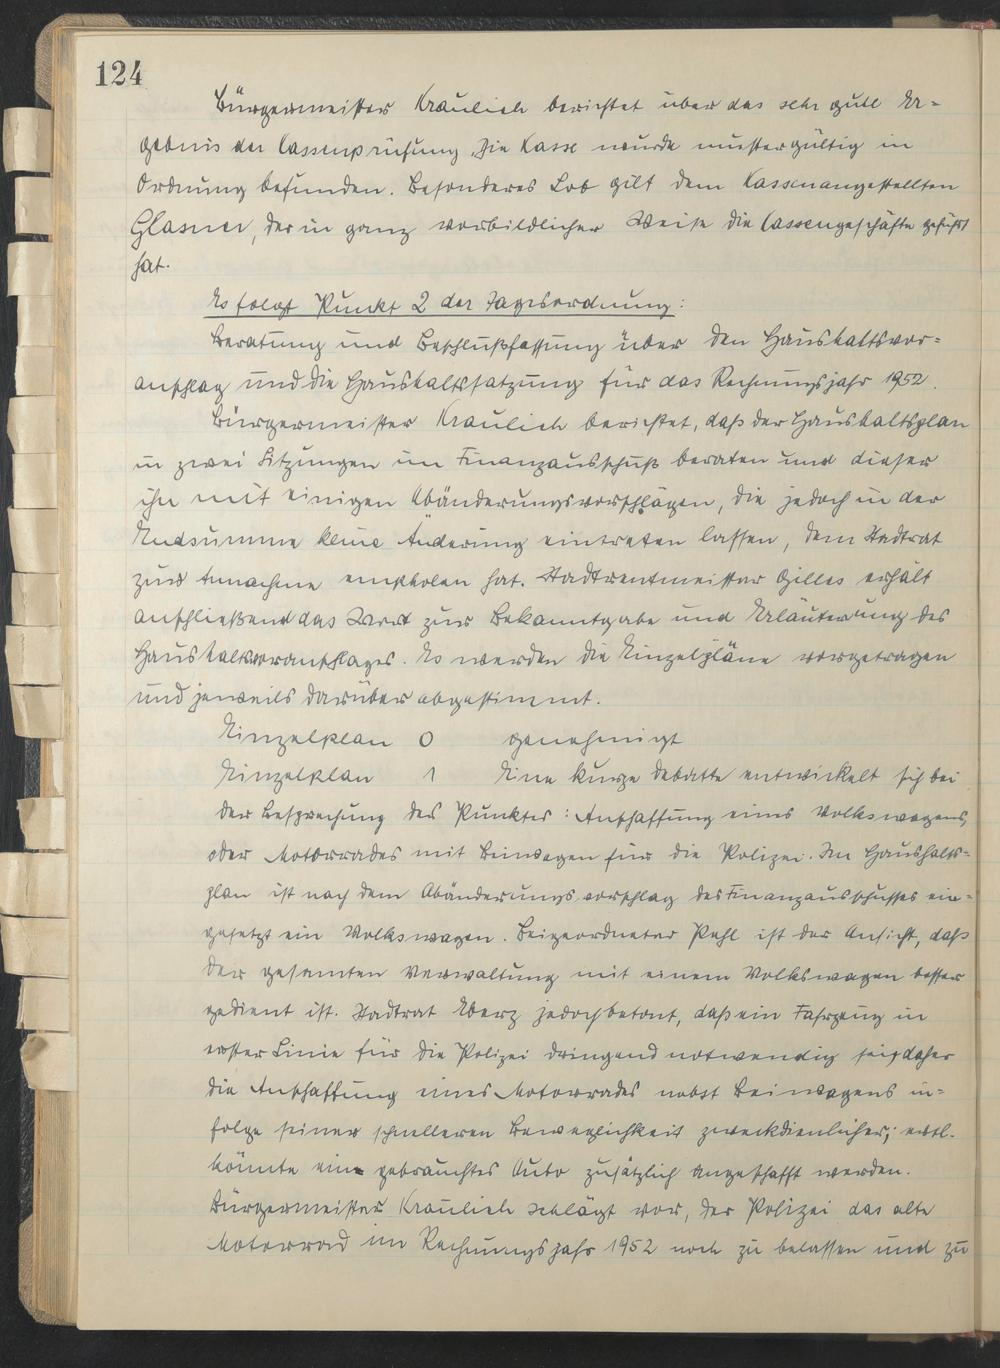 124
Bürgermeister Kraulich berichtet über das sehr gute Er=
gebnis der Cassenprüfung. Die Kasse wurde mustergültig in
Ordnung befunden. Besonderes Lob gilt dem Kassenangestellten
Glasner, der in ganz vorbildlicher Weise die Cassengeschäfte geführt
hat.
Es folgt Punkt 2 der Tagesordnung:
Beratung und Beschlußfassung über den Haushaltsvor=
anschlag und die Haushaltssatzung für das Rechnungsjahr 1952.
Bürgermeister Kraulich berichtet, daß der Haushaltsplan
in zwei Sitzungen im Finanzausschuß beraten und dieser
ihn mit einigen Abänderungsvorschlägen, die jedoch in der
Endsumme keine Änderung eintreten lassen, dem Stadtrat
zur Annahme empholen hat. Stadtrentmeister Gilles erhält
anschließend das Wort zur Bekanntgabe und Erläuterung des
Haushaltsvoranschlages. Es werden die Einzelpläne vorgetragen
und jeweils darüber abgestimmt.
Einzelplan 0 genehmigt
Einzelplan 1 Eine kurze Debatte entwickelt sich bei
der Besprechung des Punktes: Anschaffung eines Volkswagens,
oder Motorrades mit Beiwagen für die Polizei. Im Haushalts=
plan ist nach dem Abänderungsvorschlag des Finanzausschusses ein=
gesetzt ein Volkswagen. Beigeordneter Pehl ist der Ansicht, daß
der gesamten Verwaltung mit einem Volkswagen besser
gedient ist. Stadtrat Eberz jedoch betont, daß ein Fahrzeug in
erster Linie für die Polizei dringend notwendig sei, daher
die Anschaffung eines Motorrades nebst Beiwagens in=
folge seiner schnelleren Beweglichkeit zweckdienlicher; evtl.
könnte ein gebrauchtes Auto zusätzlich angeschafft werden.
Bürgermeister Kraulich schlägt vor, der Polizei das alte
Motorrad im Rechnungsjahr 1952 noch zu belassen und zu